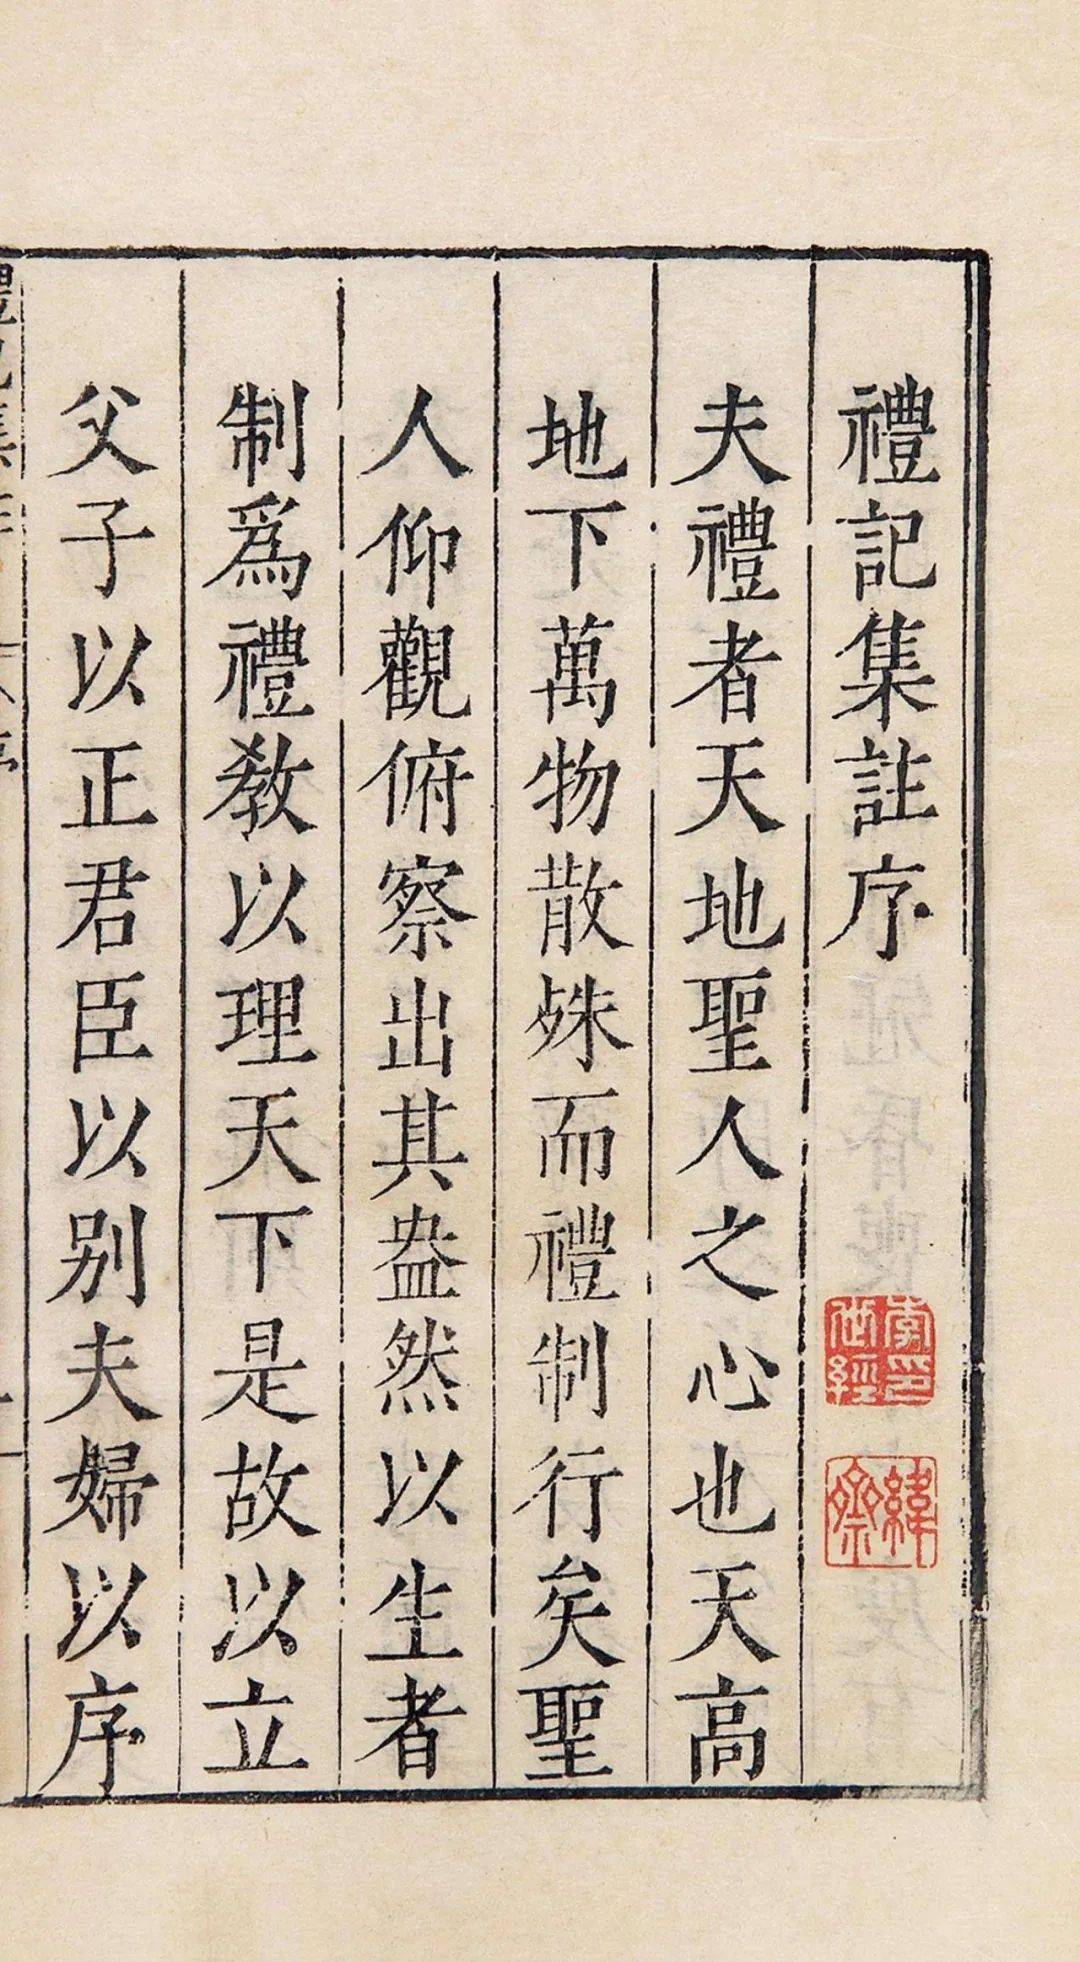 禮記集註序
夫禮者天地聖人之心也天高
地下萬物散殊而禮制行矣聖
人仰觀俯察出其盎然以生者
制爲禮教以理天下是故以立
父子以正君臣以别夫婦以序
緯齋